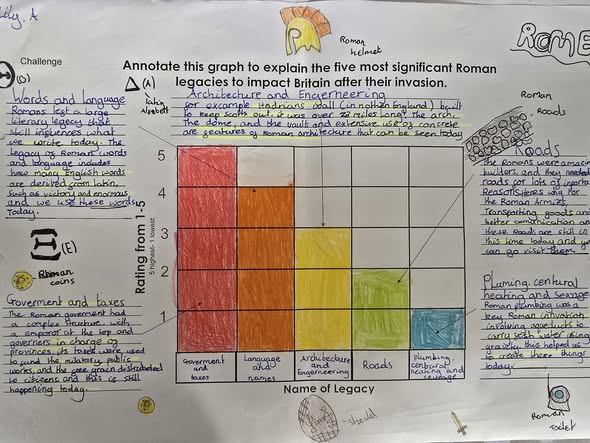 Lily. A
Roman
helmet
ROME
Challenge
Annotate this graph to explain the five most significant Roman
legacies to impact Britain after their invasion.
(A)
Latin
Words and language
Romans left a large
literary legacy that
still influences what
we write today. The
legacy of Roman words
and language includes
how many English words
are derived from Latin,
such as victory and enormous,
and we use these words
Today.
Architecture and Engerneering
for excample Hadrians wall (in nothern England) built
to keep scots out. it was over 72 miles long! The arch,
The dome, and the vault and extensive use of concrete
are features of Roman architecture that can be seen today
Roman
Roads
Roads
the Romans were amazing
builders, and they needed
roads for lots of importa
Reasons. Heres why For
the Roman Armies,
Transporting goods and
better comunication an
these Roads are still in
this time today and yo
can go visit them.
(E)
Roman
coins
Goverment and taxes
The Roman goverment had
a complex structure, with
a emporor at the top and
governers in charge of
provinces, its taxes were used
to fund the military, public
works, and the free grain distributed
to citizens and this is still
happening today.
Pluming, centural
heating and sewage
Roman plumbing was a
key Roman inovation
involving aqueducts to
carry water using
gravity this helped us
to create these things
today.
Rating from 1-5
5 highest- 1 lowest
5
4
3
2
1
Goverment
and
taxes
Language
and
names
Architecture
and
Engerneering
Roads
Plumbing,
centural
heating and
sewage
Name of Legacy
shield
Roman
toilet